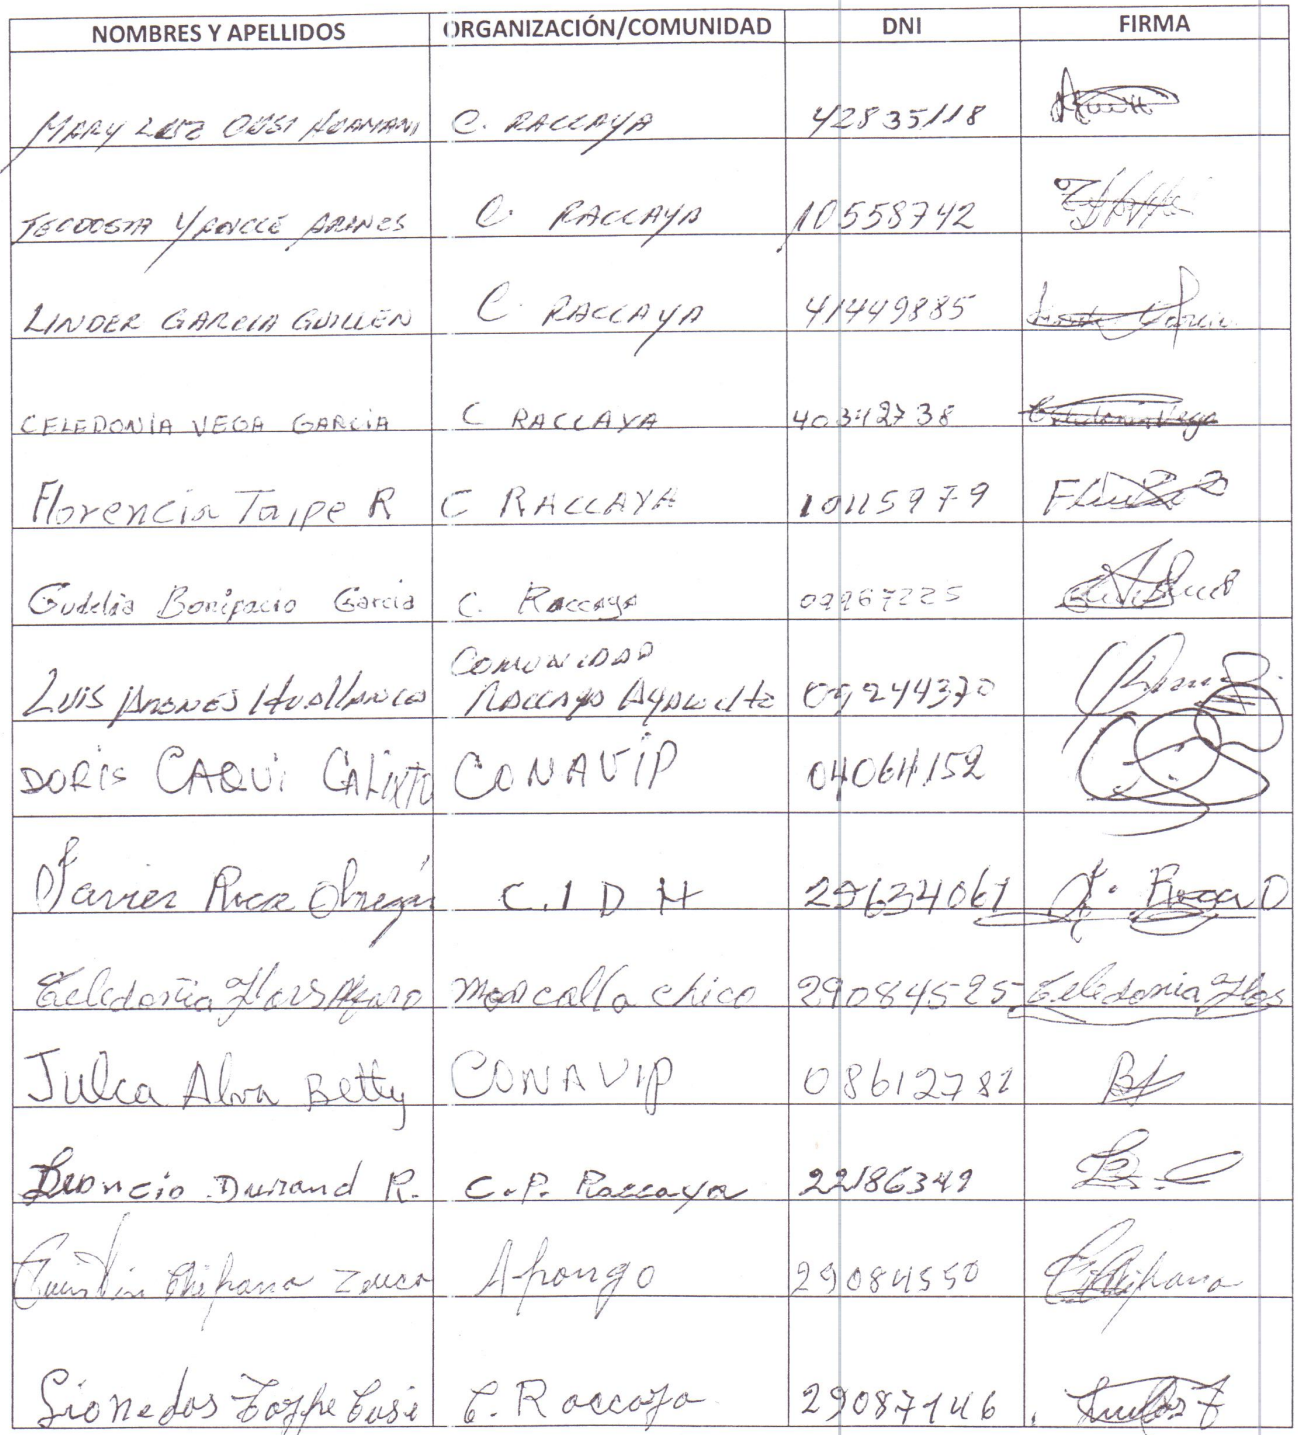 NOMBRES Y APELLIDOS ORGANIZACIÓN/COMUNIDAD DNI FIRMA
MARY LUZ CUSI HUAMANI C. RACCAYA 42835118
TEODOSIA YANCCE ARANES C. RACCAYA 10558742
LINDER GARCIA GUILLEN C. RACCAYA 41449885 Garcia
CELEDONIA VEGA GARCIA C RACCAYA 40342738 Celedonia Vega
Florencia Taipe R C RACCAYA 10115979
Gudelia Bonifacio Garcia C. Raccaya 09967225
COMUNIDAD
LUIS ARONES Huallanca Raccaya 09244370
DORIS CAQUI CALIXTO CONAVIP 04064152
Javier Roca Obregón C.I D H 29634061 J. Roca O
Celedonia Flores Alfaro marcalla chico 29084525 Celedonia Flos
Julca Alva Betty CONAVIP 08612782
Leoncio Durand R. C.P. Raccaya 22186349
Quintin Chipana Apongo 29084550 Chipana
C. Raccaya 29087146